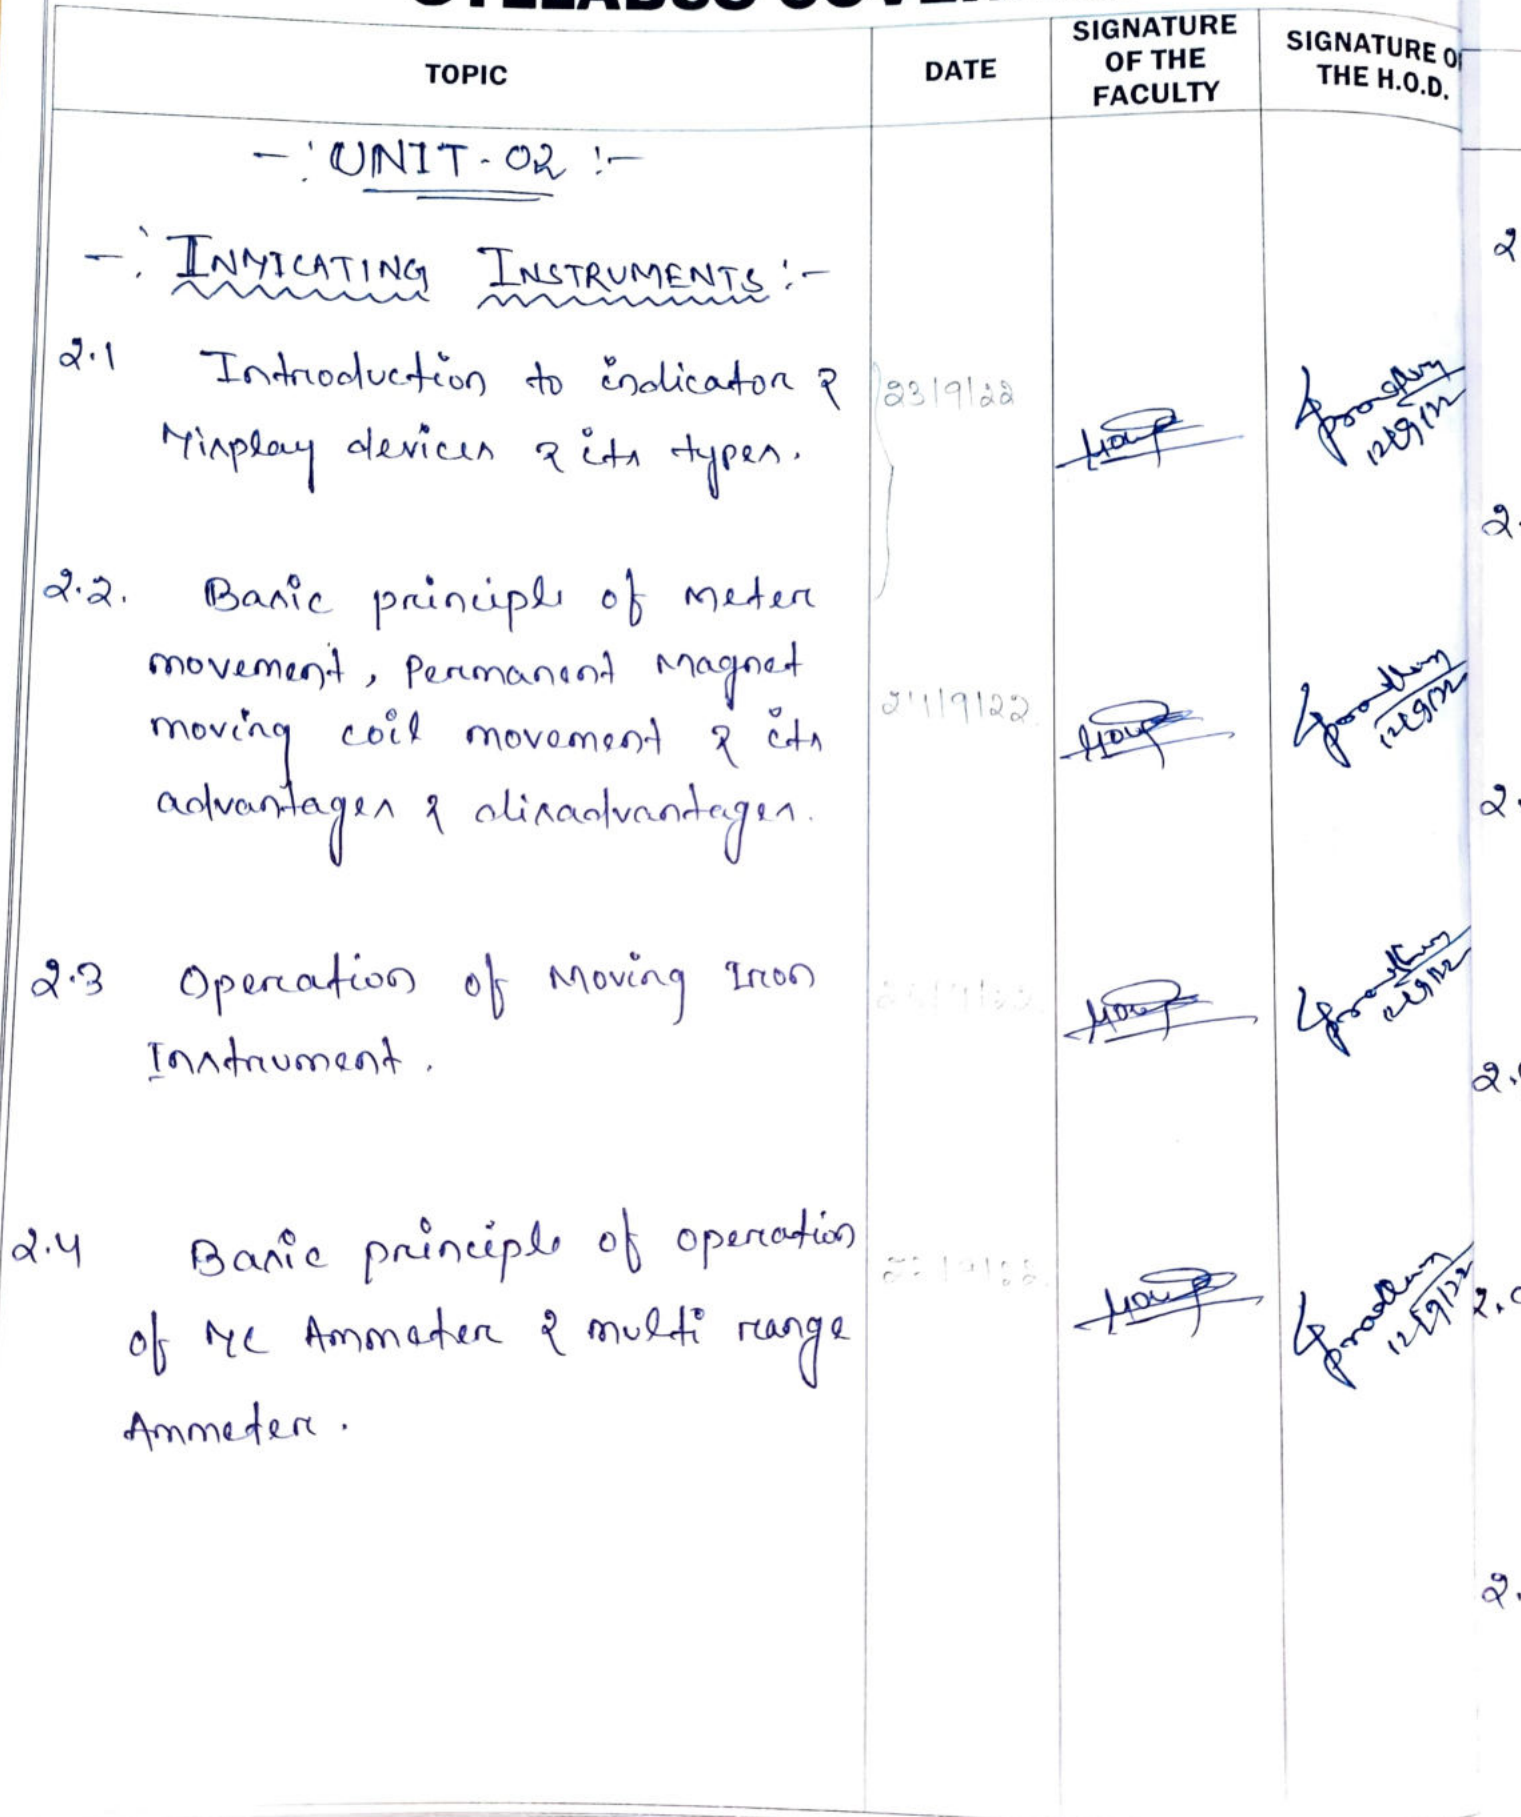 TOPIC
DATE
SIGNATURE
OF THE
FACULTY
SIGNATURE O
THE H.O.D.
-: UNIT-02 :-
-: INDICATING INSTRUMENTS :-
2.1 Introduction to indicator &
Display devices & its types.
23/9/22
2.2. Basic principle of meter
movement, Permanent Magnet
moving coil movement & its
advantages & disadvantages.
24/9/22
2.3 Operation of Moving Iron
Instrument.
2.4 Basic principle of operation
of DC Ammeter & multi range
Ammeter.